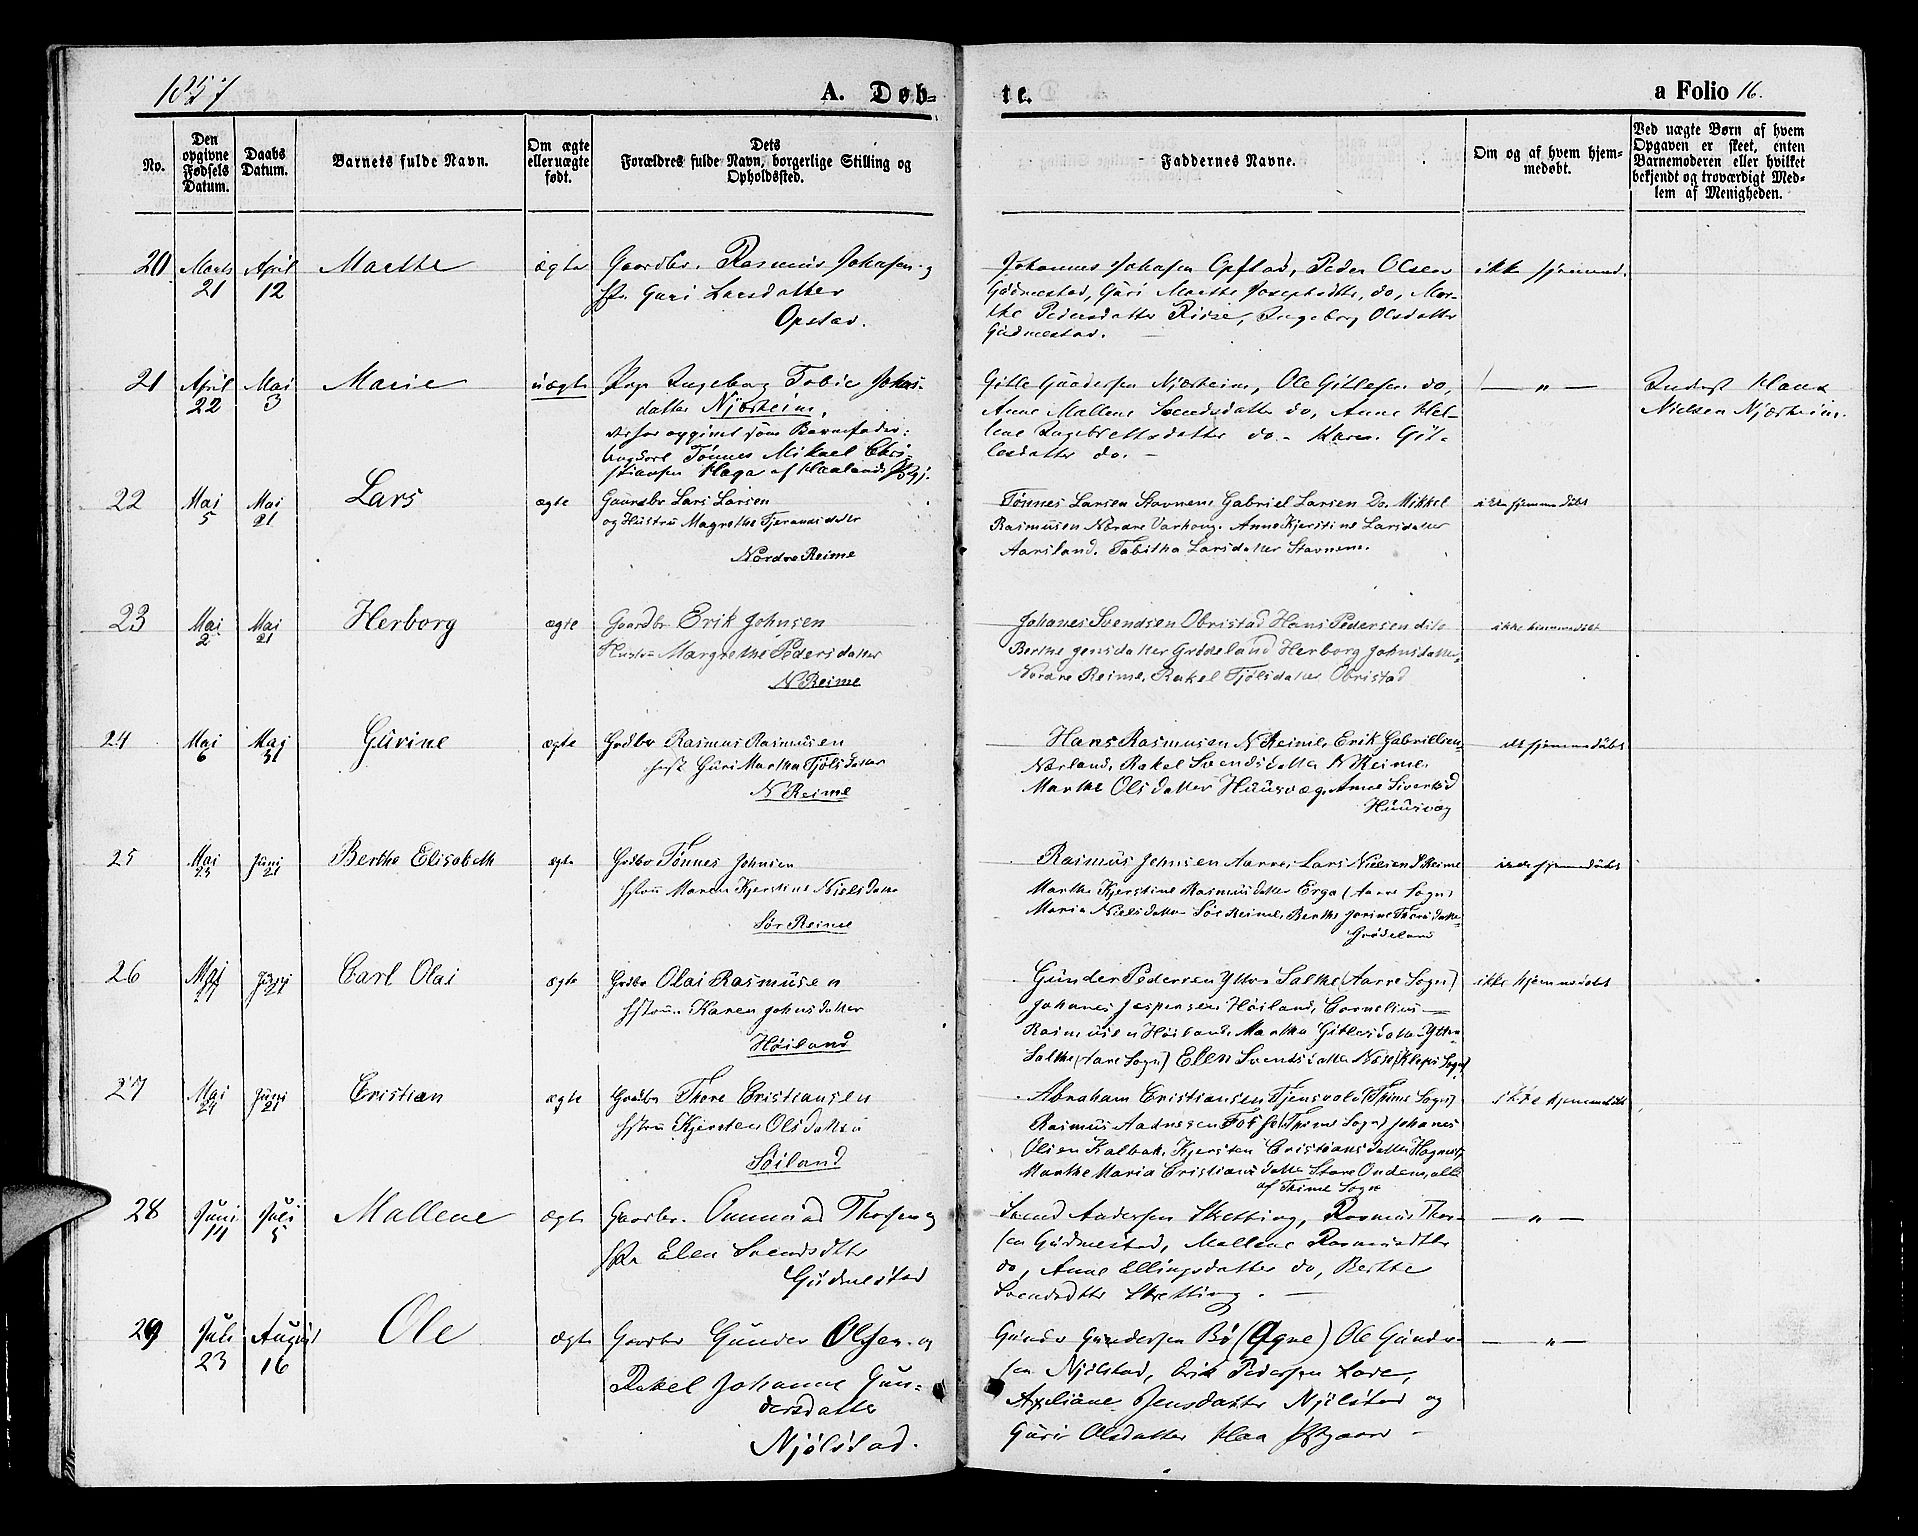 1857
A. Døb-
te.
a Folio 16.
No.
Den opgivne Fødsels Datum.
Daabs Datum.
Barnets fulde Navn.
Om ægte eller uægte født.
Dets Forældres fulde Navn, borgerlige Stilling og Opholdssted.
Faddernes Navne.
Om og af hvem hjemmedøbt.
Ved uægte Børn af hvem Opgaven er skeet, enten Barnemoderen eller hvilket bekjendt og troværdigt Medlem af Menigheden.
20 Marts 21 April 12 Marthe ægte Gaardbr. Rasmus Johnsen og
Guri Larsdatter
Opstad.
Johannes Johnsen Opstad, Peder Olsen
Gudmestad, Guri Marthe Josephsdtr, do, Mar-
the Pedersdatter Risse, Ingeborg Olsdatter
Gudmestad. —
21 April 22 Mai 3 Marie uægte Pige Ingeborg Tobie Johns-
datter Njærheim,
der har opgivet som Barnefader:
Ungkarl Tønnes Mikael Chri-
stiansen Haga af Haalands Prgj.
Gitle Gundersen Njærheim, Ole Gitlesen do,
Anne Mallene Svendsdatter do, Anne Hel-
lene Ingebrettsdatter do. Karen Git-
lesdatter do. —
— " —
Inderst Hans
Nielsen Njærheim.
22 Mai 5 Mai 21 Lars ægte Gaardbr Lars Larsen
og Hustru Magrethe Tjerandsdatter
Nordre Reime
Tønnes Larsen Stavnem Gabriel Larsen Do. Mikkel
Rasmusen Nordre Varhoug. Anne Kjerstine Larsdatter
Aarsland. Tabitha Larsdatter Stavnem.
ikke hjemmedøbt
23 Mai 2 Mai 21 Herborg ægte Gaardbr Erik Johnsen
Hustru Margrethe Pedersdatter
N Reime
Johanes Svendsen Obrestad Hans Pedersen dito
Berthe Jensdatter Grødeland Herborg Johnsdatter
Nordre Reime. Rakel Tjølsdatter Obristad
ikke hjemmedøbt
24 Mai 6 Mai 31 Gurine ægte Grdbr Rasmus Rasmusen
Hust Guri Martha Tjølsdatter
N Reime
Hans Rasmusen N Reime. Erik Gabrielsen
Nærland. Rakel Svendsdatter N Reime.
Marthe Olsdatter Huusvæg. Anne Sivertsd
Huusvæg
ikke hjemmedøbt
25 Mai 23 Juni 21 Berthe Elisabeth ægte Grdbr Tønnes Johnsen
Hstru Maren Kjerstine Nielsdatter
Sør Reime
Rasmus Johnsen Aarre. Lars Nielsen S Reime
Marthe Kjerstine Rasmusdatter Erga (Aarre Sogn)
Maria Nielsdatter Sør Reime. Berthe Jorine Thoresdatter
Grødeland
ikke hjemmedøbt
26 Mai 17 Juni 21 Carl Olai ægte Grdbr Olai Rasmusen
Hstru Karen Johnsdatter
Høiland
Gunder Pedersen Yttre Salthe (Aarre Sogn)
Johanes Jespersen Høiland, Cornelius
Rasmusen Høiland. Martha Gitlesdatter Yttre
Salthe (Aare Sogn) Elen Svendsdatter Næse (Kleps Sogn)
ikke hjemmedøbt
27 Mai 27 Juni 21 Cristian ægte Grdbr Thore Cristiansen
Hstru Kjersten Olsdatter
Søiland
Abraham Cristiansen Tjensvold (Thime Sogn)
Rasmus Aadnesen Fosse (Thime Sogn) Johanes
Olsen Kalbak. Kjersten Cristiansdatter
Marthe Maria Cristiansdatter Store Undem, alle
af Thime Sogn
ikke hjemmedøbt
28 Juni 14 Juli 5 Mallene ægte Gaardbr. Ommund Thorsen og
Elen Svendsdtter
Gudmestad
Svend Andersen Skretting, Rasmus Thor-
sen Gudmestad, Mallene Rasmusdtter
do, Anne Ellingsdatter do, Berthe
Svendsdtter Skretting. —
— " —
29 Juli 23 August 16 Ole ægte Gaardbr Gunder Olsen og
Rakel Johanne Gun-
dersdatter
Njølstad.
Gunder Gundersen Bø (Ogne) Ole Gunder-
sen Njølstad, Erik Pedersen Lode,
Axeliane Jensdatter Njølstad og
Guri Olsdatter Haa —
— " —